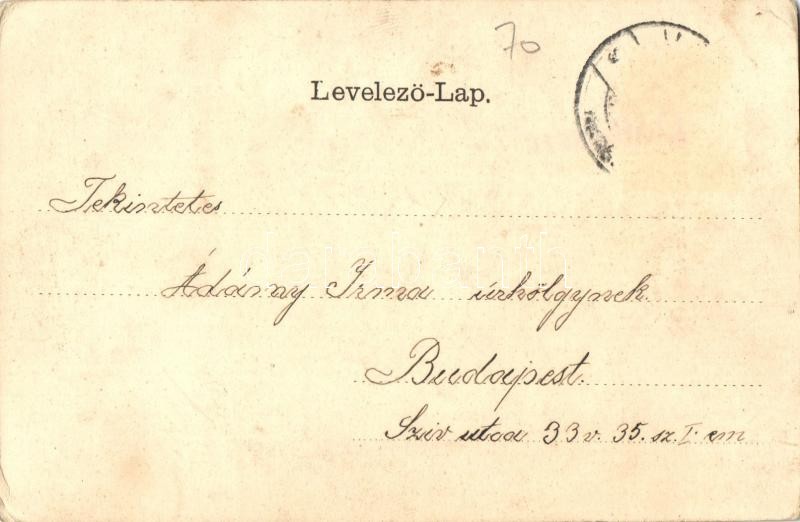 70
Levelező-Lap.
Tekintetes
Ádámy Irma úrhölgynek
Budapest.
Sziv utca 33 v. 35. sz. I. em